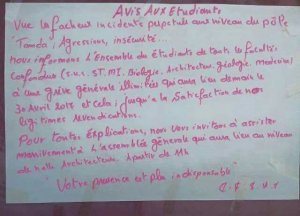 AVIS AUX Etudiants
Vue les facheux incidents perpetués au niveau du pôle
Tamda, Agressions, insécurité...
nous informons l'Ensemble des Etudiants de touts les facultés
Confondus (ST, MI, Biologie, Architecteur, géologie, medecin)
à une grève générale illimitée qui aura lieu demain le
30 Avril 2015 et cela jusqu'a la Satisfaction de nos
légitimes revendications.
Pour toutes Explications, nous vous invitons à assister
massivement à l'assemblée générale qui aura lieu au niveau
du halle Architecteur. A partir de 11h
"Votre presence est plus indisponsable"